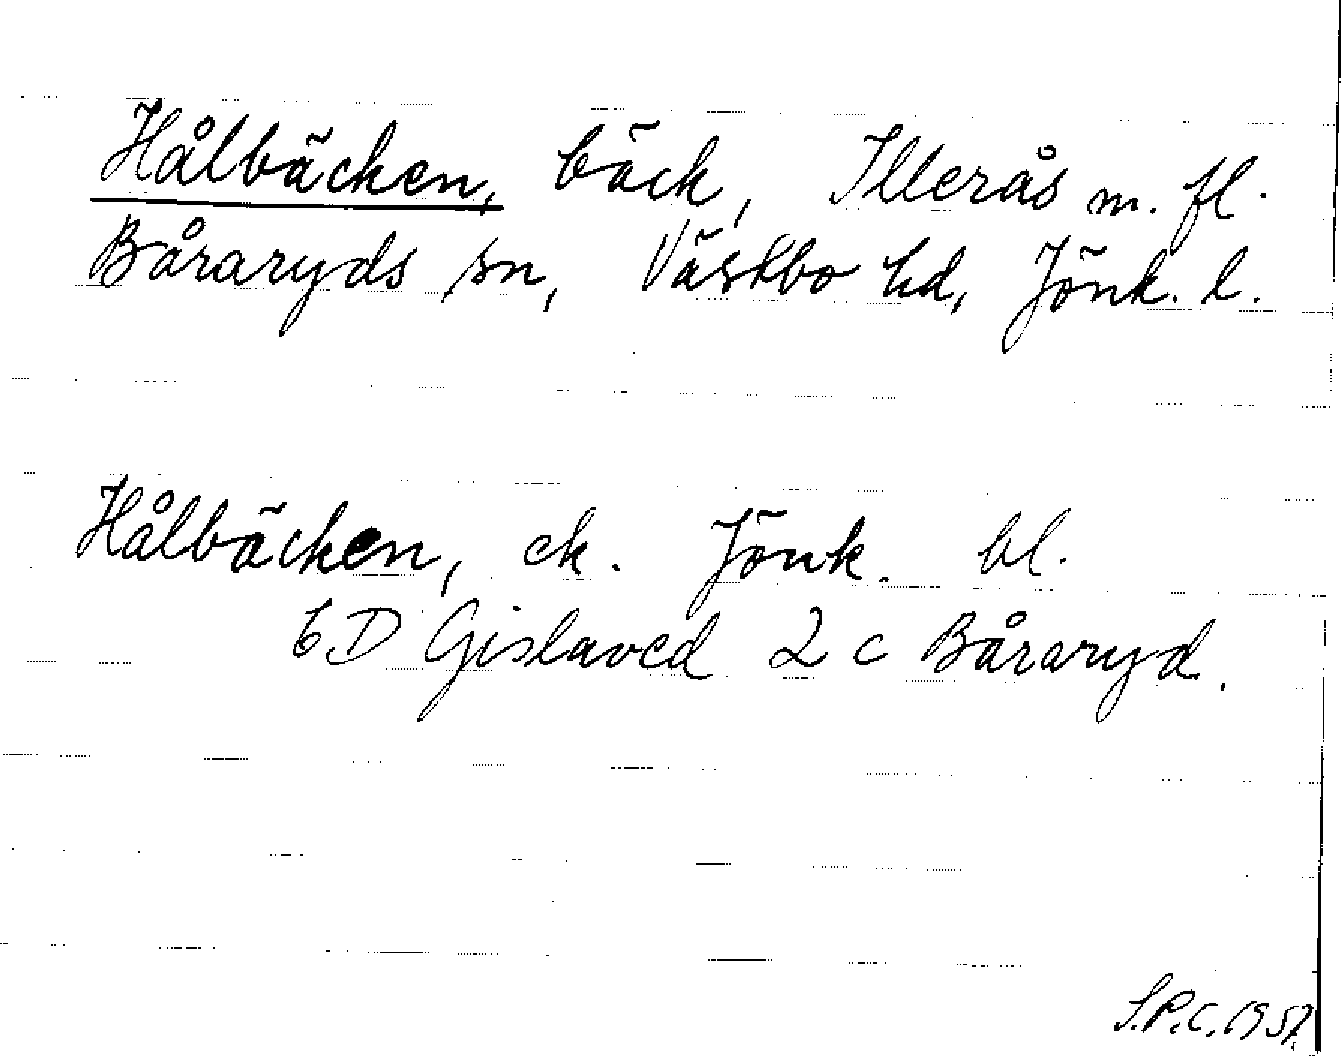 Hålbäcken, bäck, Illerås m. fl.
Båraryds sn, Västbo hd, Jönk. l.
Hålbäcken, ek. Jönk. bl.
6D Gislaved 2 c Båraryd.
S.P.C. 1957.